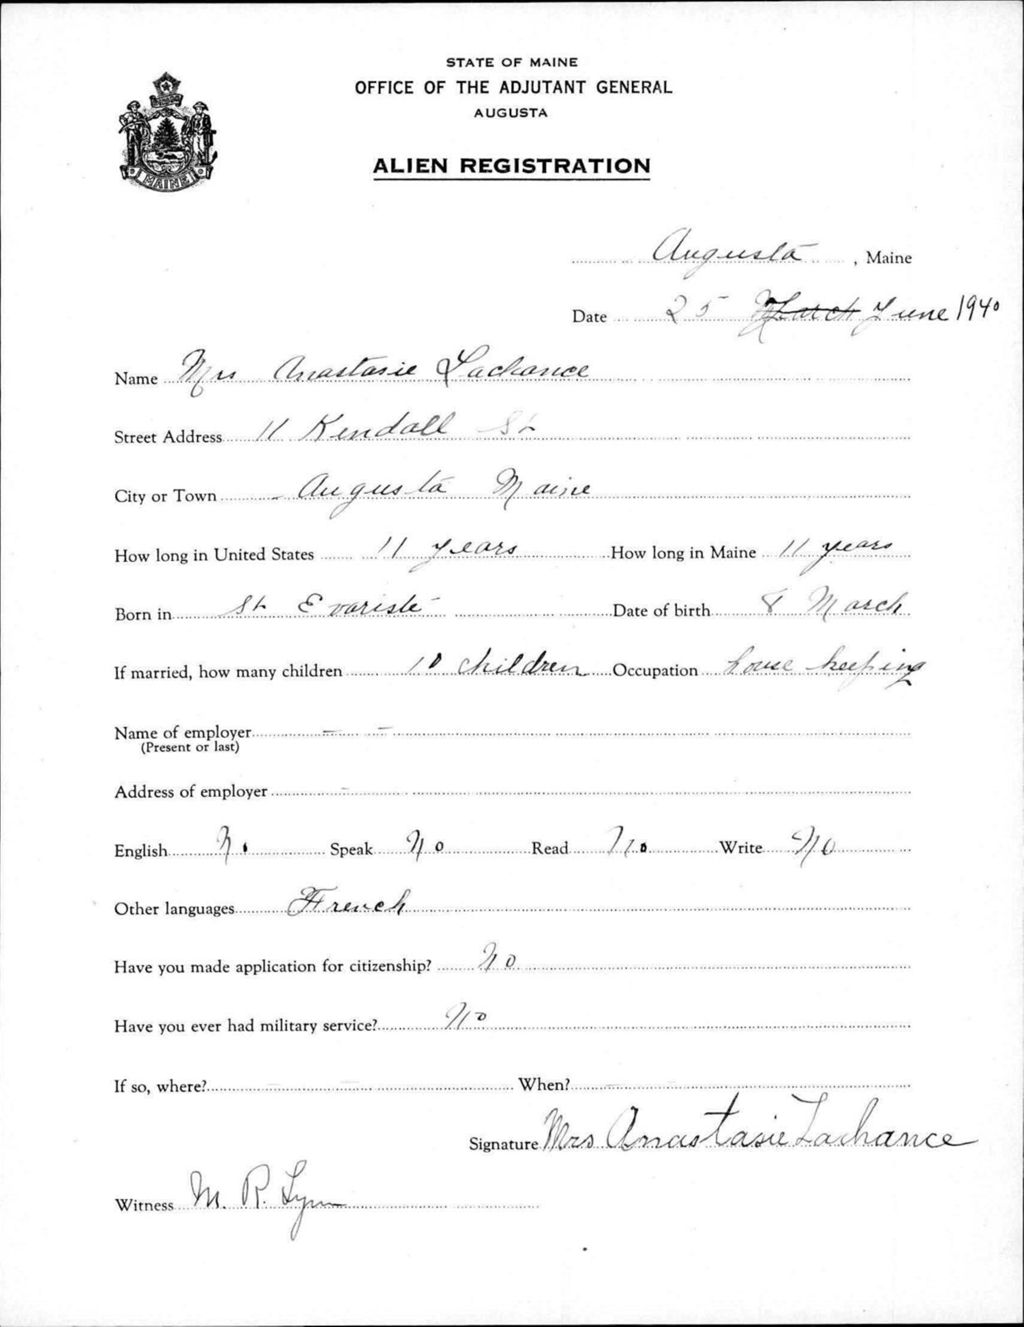 STATE OF MAINE
OFFICE OF THE ADJUTANT GENERAL
AUGUSTA
ALIEN REGISTRATION
MAINE
Augusta, Maine
Date 25 March June 1940
Name Mrs Anastasie Lachance
Street Address 11 Kendall St
City or Town Augusta Maine
How long in United States 11 years How long in Maine 11 years
Born in St Evariste Date of birth 8 March
If married, how many children 10 children Occupation house keeping
Name of employer — —
(Present or last)
Address of employer —
English No Speak No Read No Write No
Other languages French
Have you made application for citizenship? No
Have you ever had military service? No
If so, where? — — When? — —
Signature Mrs Anastasie Lachance
Witness M. R. Lynn